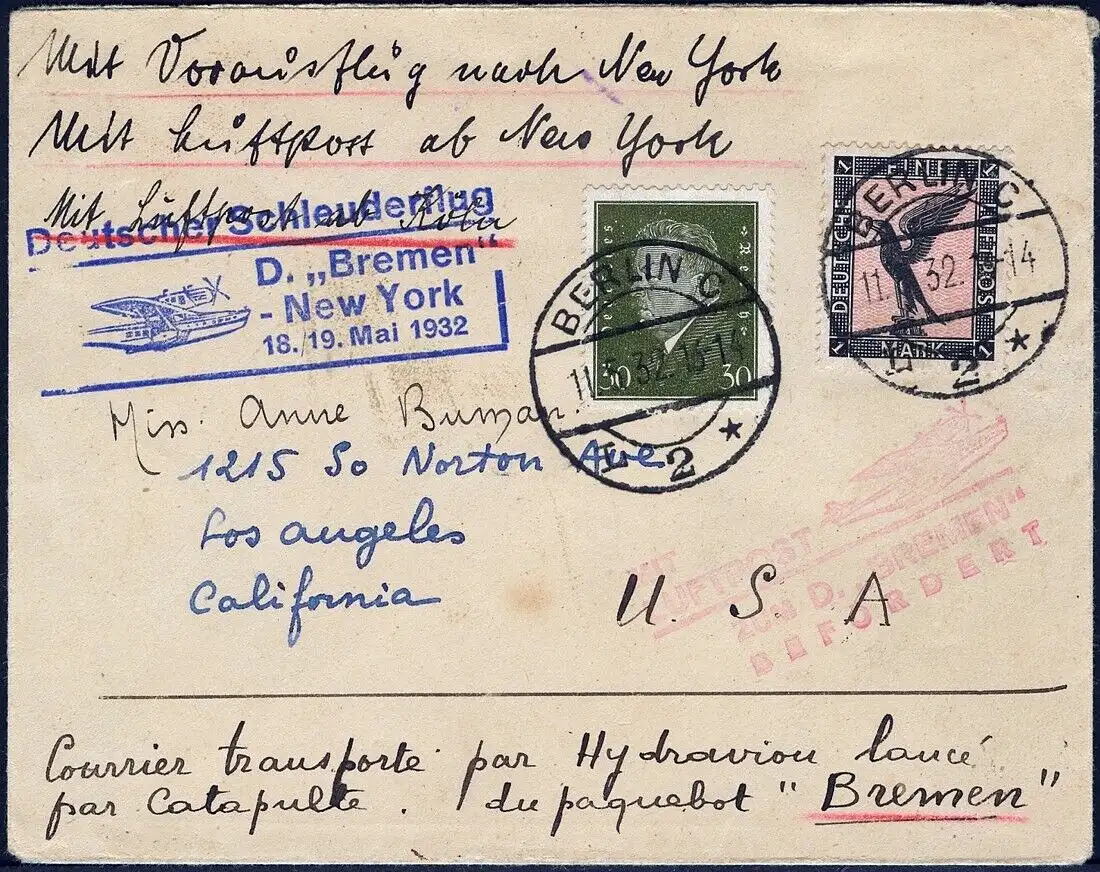 Mit Vorausflug nach New York
Mit Luftpost ab New York
Mit Luftpost ab Köln
Deutscher Schleuderflug
D. „Bremen“
- New York
18./19. Mai 1932
Deutsches Reich
30 30
BERLIN C
11. 32. 14
L 2 ★
1 EINE 1
DEUTSCHE
REICHSPOST
1 MARK 1
BERLIN C
11. 32. 14
L 2 ★
Miss. Anne Buman.
1215 So Norton Ave
Los angeles
California
U. S. A
MIT
LUFTPOST
ZUM D. „BREMEN“
BEFÖRDERT
Courrier transporté par Hydravion lancé
par Catapulte. du paquebot "Bremen"